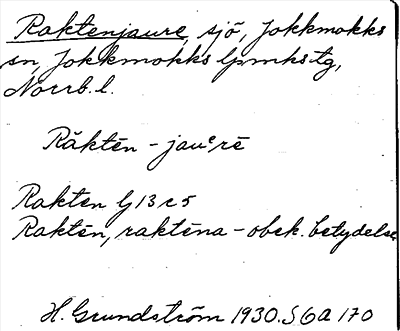 Raktenjaure, sjö, Jokkmokks
sn, Jokkmokks lpmkstg,
Norrb. l.
Räktēn - jauᵉrē
Rakten G13c5
Raktēn, raktēna - obek. betydelse
H. Grundström 1930. S6a 170